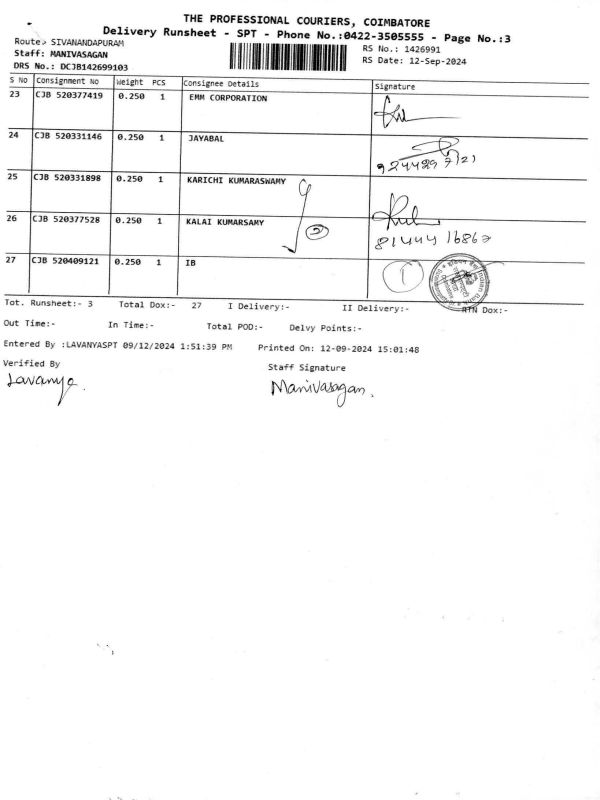 THE PROFESSIONAL COURIERS, COIMBATORE
Delivery Runsheet - SPT - Phone No.:0422-3505555 - Page No.:3
Route: SIVANANDAPURAM
RS No.: 1426991
Staff: MANIVASAGAN
RS Date: 12-Sep-2024
DRS No.: DCJB142699103
S No Consignment No Weight PCS Consignee Details Signature
23 CJB 520377419 0.250 1 EMM CORPORATION
24 CJB 520331146 0.250 1 JAYABAL
25 CJB 520331898 0.250 1 KARICHI KUMARASWAMY
26 CJB 520377528 0.250 1 KALAI KUMARSAMY
2
81444 16862
27 CJB 520409121 0.250 1 IB
1
Tot. Runsheet:- 3 Total Dox:- 27 I Delivery:- II Delivery:- RTN Dox:-
Out Time:- In Time:- Total POD:- Delvy Points:-
Entered By :LAVANYASPT 09/12/2024 1:51:39 PM Printed On: 12-09-2024 15:01:48
Verified By Staff Signature
Lavanya. Manivasagan.